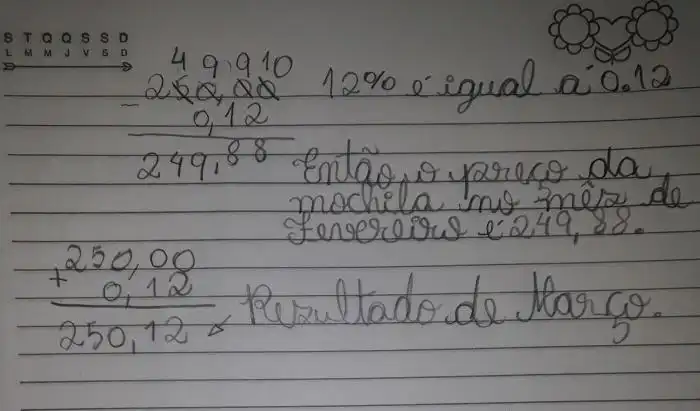 S T Q Q S S D
L M M J V S D
4 9,9 10
250,00 12% é igual a 0.12
- 0,12
249,88 Então, o pareço da
mochila no mês de
Fevereiro é 249,88.
250,00
+ 0,12
250,12 Resultado de Março.